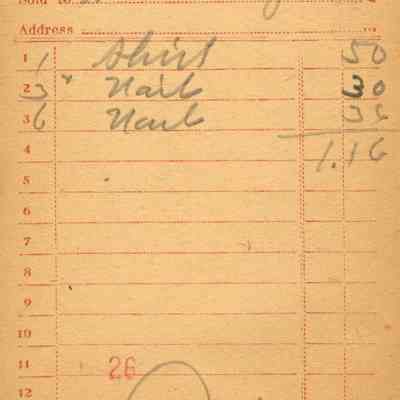 Sold to
Address
1 1 Shirt 50
2 3 Nail 30
3 6 Nail 36
4 1.16
5
6
7
8
9
10
11 26
12